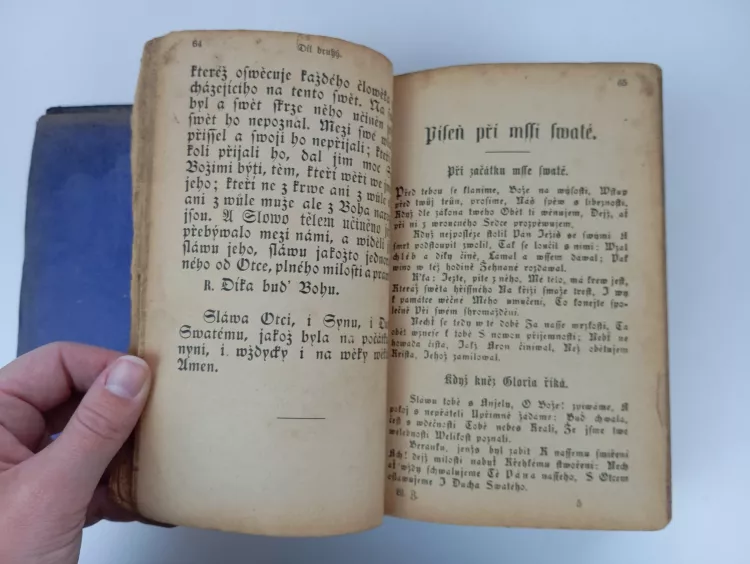 64
Díl druhý.
kteréž oswěcuje každého člowěka
cházejícího na tento swět. Na
byl a swět skrze něho učiněn
swět ho nepoznal. Mezi swé
přissel a swoji ho nepřijali;
koli přijali ho, dal jim moc
Božími býti, těm, kteří wěří we
jeho; kteří ne z krwe ani z wůle
ani z wůle muže ale z Boha
jsou. A Slowo tělem učiněno
přebýwalo mezi námi, a widěli
sláwu jeho, sláwu jakožto
ného od Otce, plného milosti a
R. Díka buď Bohu.
Sláwa Otci, i Synu, i
Swatému, jakož byla na
nyní, i wždycky i na wěky
Amen.
65
Píseň při mssi swaté.
Při začátku msse swaté.
Před tebou se klaníme, Bože na wýsosti, Wstup
před twůj trůn, prosíme, Náš zpěw s libezností,
Když dle zákona twého Oběť ti wěnujem, Dejž, ať
při ní z wroucného Srdce prozpěwujem.
Když nejposléze stolil Pán Ježíš se swými A
smrt podstoupit zwolil, Tak se loučil s nimi: Wzal
chléb a díky čině, Lámal a wssem dáwal; Pak
wíno w též hodině Žehnané rozdáwal.
Řka: Jezte, pijte z něho, Mé tělo, má krew jest,
Kteráž swěta hříssného Na kříži smaže trest, I wy
k památce wěčné Mého umučení, To konejte
Při swém shromáždění.
Nechť se tedy w té době Za nasse mrzkosti, Ta
oběť wznese k tobě S nowou příjemností; Nechť ne-
howadá čistá, Jakž Aron činíwal, Než obětujem
Krista, Jehož zamilowal.
Když kněz Gloria říká.
Sláwu tobě s Anjely, O Bože! zpíwáme, A
pokoj s nepřáteli Upřímně žádáme: Buď chwála,
čest s wděčností Tobě nebes Králi, Že jsme twé
welebnosti Welikost poznali.
Beránku, jenžs byl zabit K nassemu smíření
Ach! dejž milosti nabýt Křehkému stwoření: Nech
ať wždy schwalujeme Tě Pána nasseho, S Otcem
oslawujeme I Ducha Swatého.
5